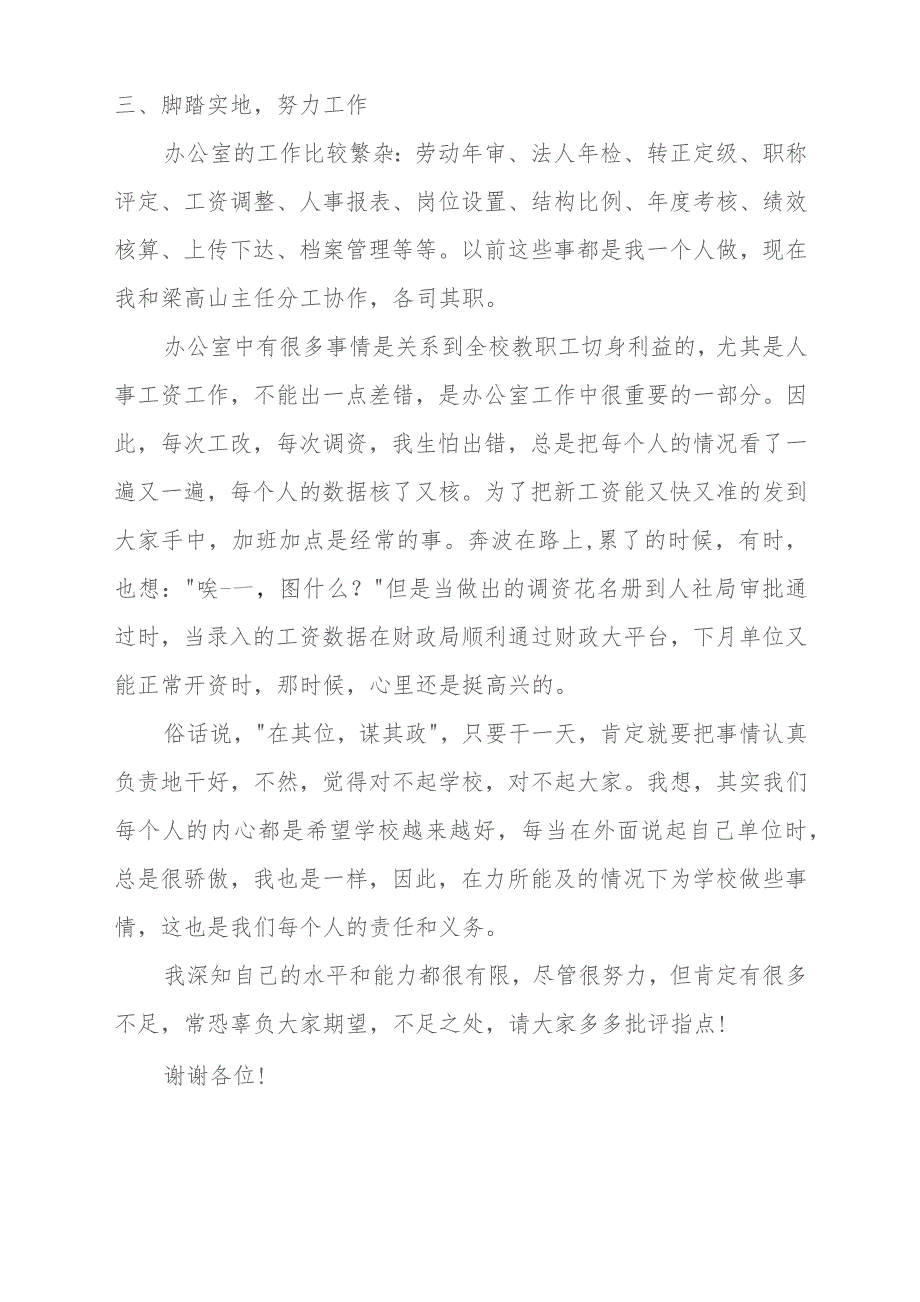 三、脚踏实地，努力工作
办公室的工作比较繁杂：劳动年审、法人年检、转正定级、职称
评定、工资调整、人事报表、岗位设置、结构比例、年度考核、绩效
核算、上传下达、档案管理等等。以前这些事都是我一个人做，现在
我和梁高山主任分工协作，各司其职。
办公室中有很多事情是关系到全校教职工切身利益的，尤其是人
事工资工作，不能出一点差错，是办公室工作中很重要的一部分。因
此，每次工改，每次调资，我生怕出错，总是把每个人的情况看了一
遍又一遍，每个人的数据核了又核。为了把新工资能又快又准的发到
大家手中，加班加点是经常的事。奔波在路上,累了的时候，有时，
也想："唉-一，图什么？"但是当做出的调资花名册到人社局审批通
过时，当录入的工资数据在财政局顺利通过财政大平台，下月单位又
能正常开资时，那时候，心里还是挺高兴的。
俗话说，"在其位，谋其政"，只要干一天，肯定就要把事情认真
负责地干好，不然，觉得对不起学校，对不起大家。我想，其实我们
每个人的内心都是希望学校越来越好，每当在外面说起自己单位时，
总是很骄傲，我也是一样，因此，在力所能及的情况下为学校做些事
情，这也是我们每个人的责任和义务。
我深知自己的水平和能力都很有限，尽管很努力，但肯定有很多
不足，常恐辜负大家期望，不足之处，请大家多多批评指点!
谢谢各位!